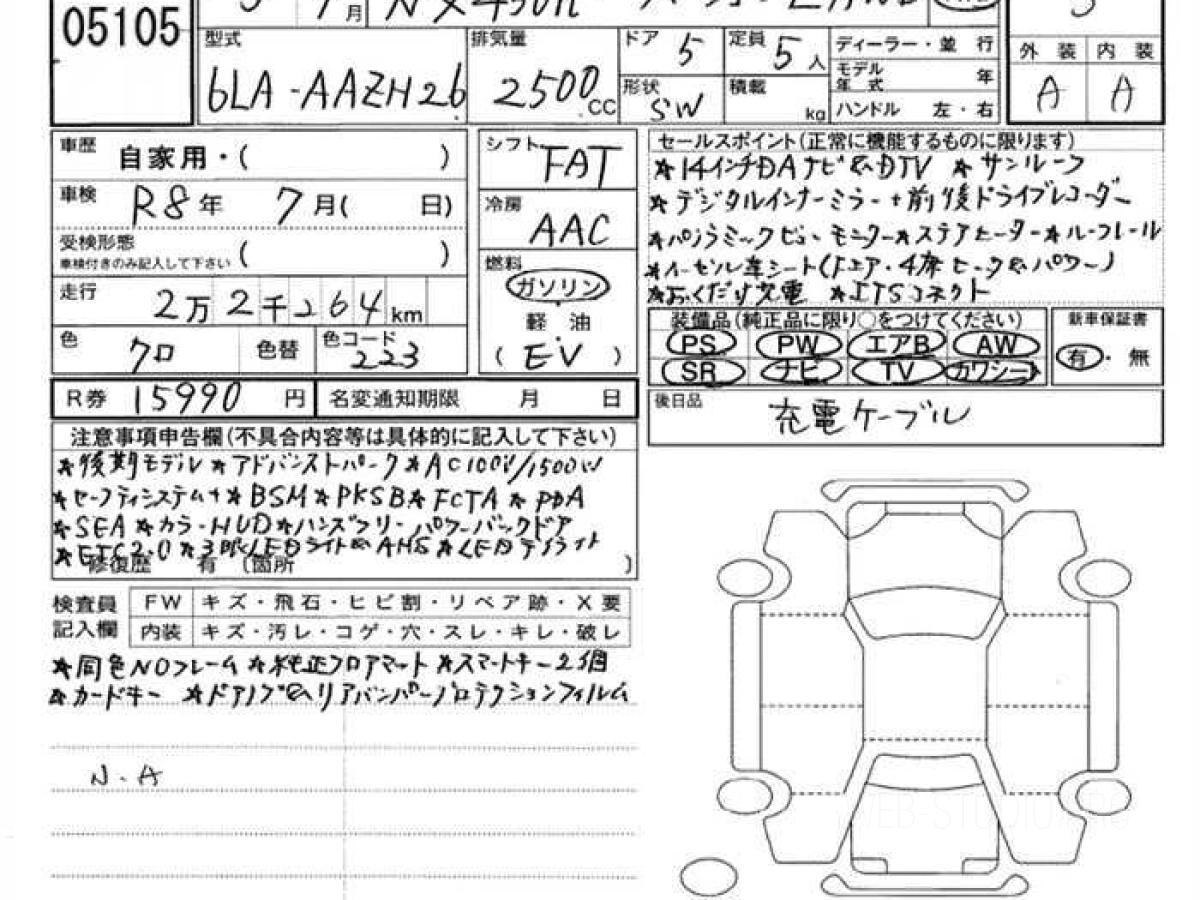 05105
月 NX450h+
型式 6LA-AAZH26
排気量 2500 CC
ドア 5
定員 5 人
形状 SW
積載 kg
ディーラー・並 行
モデル年式 年
ハンドル 左・右
外 装 内 装
A A
車歴 自家用・( )
車検 R8年 7月( 日)
受検形態 ( )
車検付きのみ記入して下さい
走行 2万2千264km
色 クロ 色替 色コード 223
シフト FAT
冷房 AAC
燃料 ガソリン
軽 油
( EV )
セールスポイント(正常に機能するものに限ります)
*14インチDAナビ&DTV *サンルーフ
*デジタルインナーミラー+前後ドライブレコーダー
*パノラミックビューモニター*ステアヒーター*ルーフレール
*オーセル革シート(Fエア・4席ヒーター&パワー)
*おくだけ充電 *ITSコネクト
装備品(純正品に限り○をつけてください)
PS PW エアB AW
SR ナビ TV カワシート
新車保証書
有・無
R券 15990 円 名変通知期限 月 日
後日品 充電ケーブル
注意事項申告欄(不具合内容等は具体的に記入して下さい)
*後期モデル*アドバンストパーク*AC100V/1500W
*セーフティシステム+*BSM*PKSB*FCTA*PDA
*SEA*カラーHUD*ハンズフリーパワーバックドア
*ETC2.0*3眼LEDライト&AHS*LEDデイライト
修復歴 有 (箇所 )
検査員記入欄
FW キズ・飛石・ヒビ割・リペア跡・X要
内装 キズ・汚レ・コゲ・穴・スレ・キレ・破レ
*同色NOフレーム*純正フロアマット*スマートキー2個
*カードキー *ドアノブ&リアバンパープロテクションフィルム
N.A